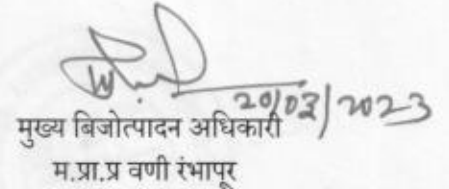 20/03/2023
मुख्य बिजोत्पादन अधिकारी
म.प्रा.प्र वणी रंभापूर